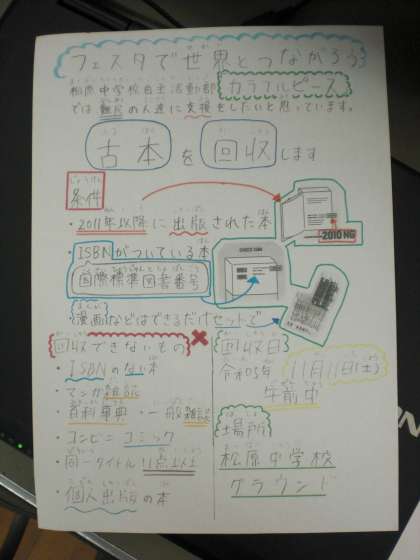 フェスタで世界とつながろう
松原中学校自主活動部 カラフルピース
では難民の人達に支援をしたいと思っています。
古本を回収します
条件
・2011年以降に出版された本
2010 NG
・ISBNがついている本
国際標準図書番号
漫画などはできるだけセットで
回収できないもの
・ISBNのない本
・マンガ雑誌
・百科事典・一般雑誌
・コンビニコミック
・同一タイトル11点以上
・個人出版の本
回収日
令和05年 11月11日(土)
午前中
場所
松原中学校
グラウンド